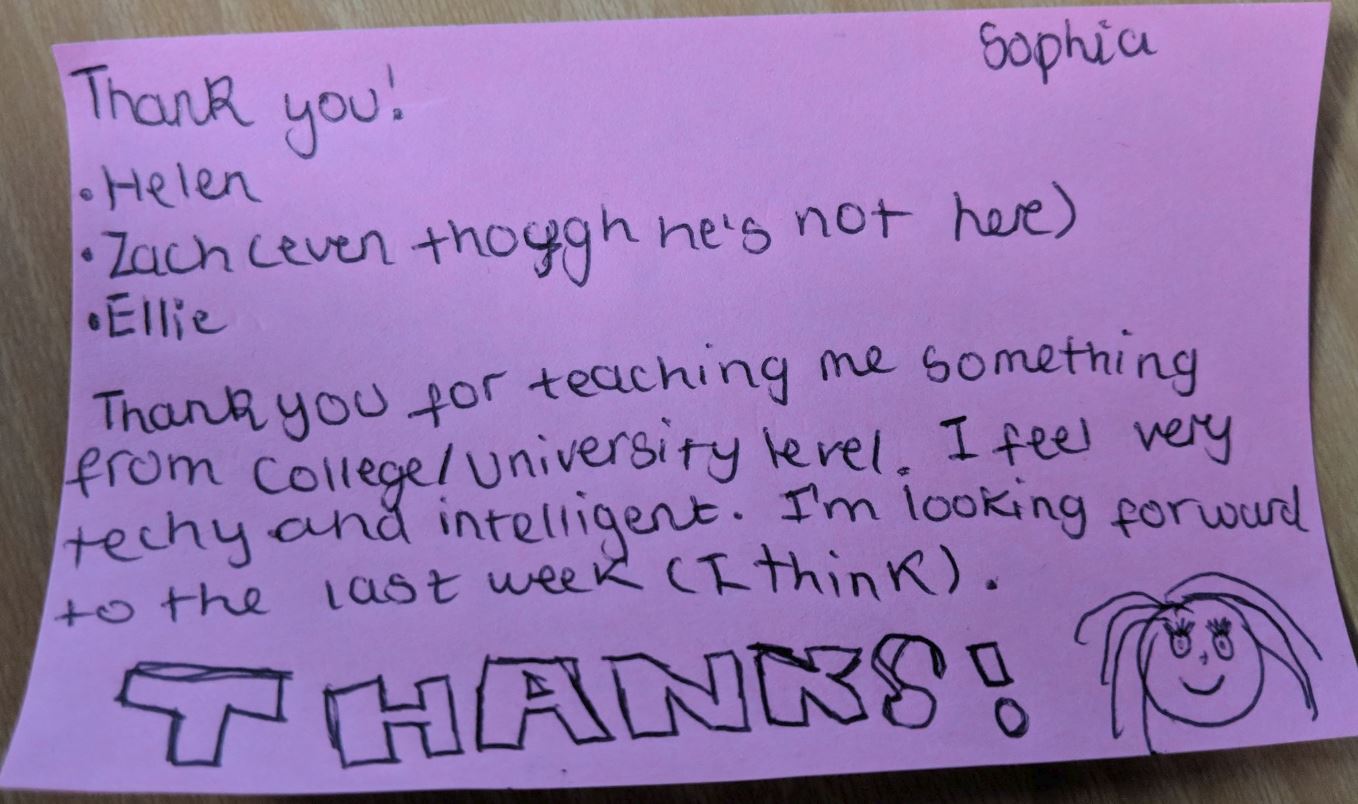 Sophia
Thank you!
• Helen
• Zach (even though he's not here)
• Ellie
Thank you for teaching me something
from College/University level. I feel very
techy and intelligent. I'm looking forward
to the last week (I think).
THANKS!